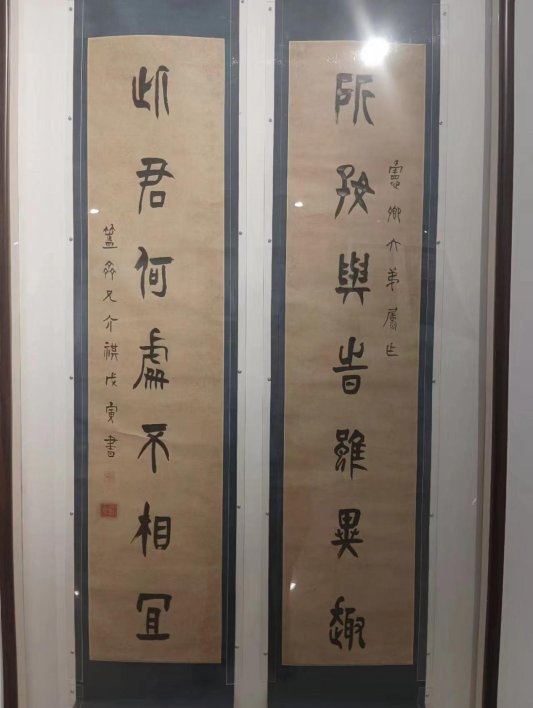 所好與旹雖異趣
憲卿大弟屬乍
此君何處不相宜
簠齋兄介祺戊寅書